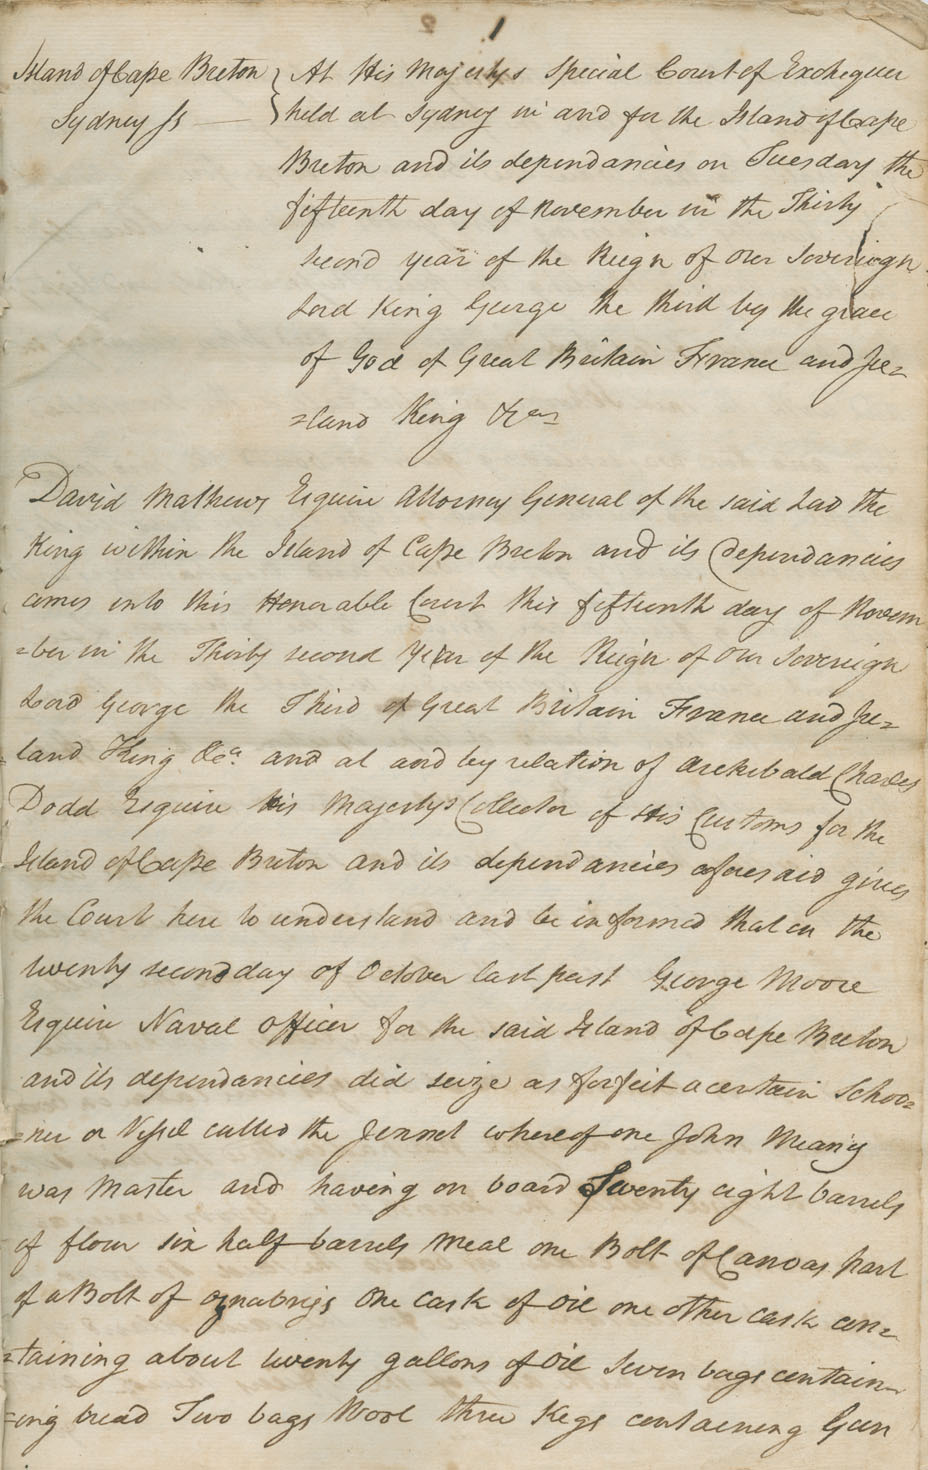 1
Island of Cape Breton } At His Majestys Special Court of Exchequer
Sydney ss — held at Sydney in and for the Island of Cape
Breton and its dependancies on Tuesday the
fifteenth day of November in the Thirty
second year of the Reign of our Sovereign
Lord King George the third by the grace
of God of Great Britain France and Ire=
=land King &ca
David Mathews Esquire Attorney General of the said Lord the
King within the Island of Cape Breton and its dependancies
comes into this Honorable Court this fifteenth day of Novem
=ber in the Thirty second Year of the Reign of our Sovereign
Lord George the Third of Great Britain France and Ire=
=land King &ca. and at and by relation of Archibald Charles
Dodd Esquire His Majestys Collector of His Customs for the
Island of Cape Breton and its dependancies aforesaid gives
the Court here to understand and be informed that on the
twenty second day of October last past George Moore
Esquire Naval Officer for the said Island of Cape Breton
and its dependancies did seize as forfeit a certain Schoo=
=ner or Vessel called the whereof one John Meany
was Master and having on board Twenty eight barrels
of flour six half barrels meal one Bolt of Canvas part
of a Bolt of oznabrigs One Cask of Oil one other cask con=
=taining about twenty gallons of Oil Seven bags contain=
=ing bread Two bags Wool three Kegs containing Gun